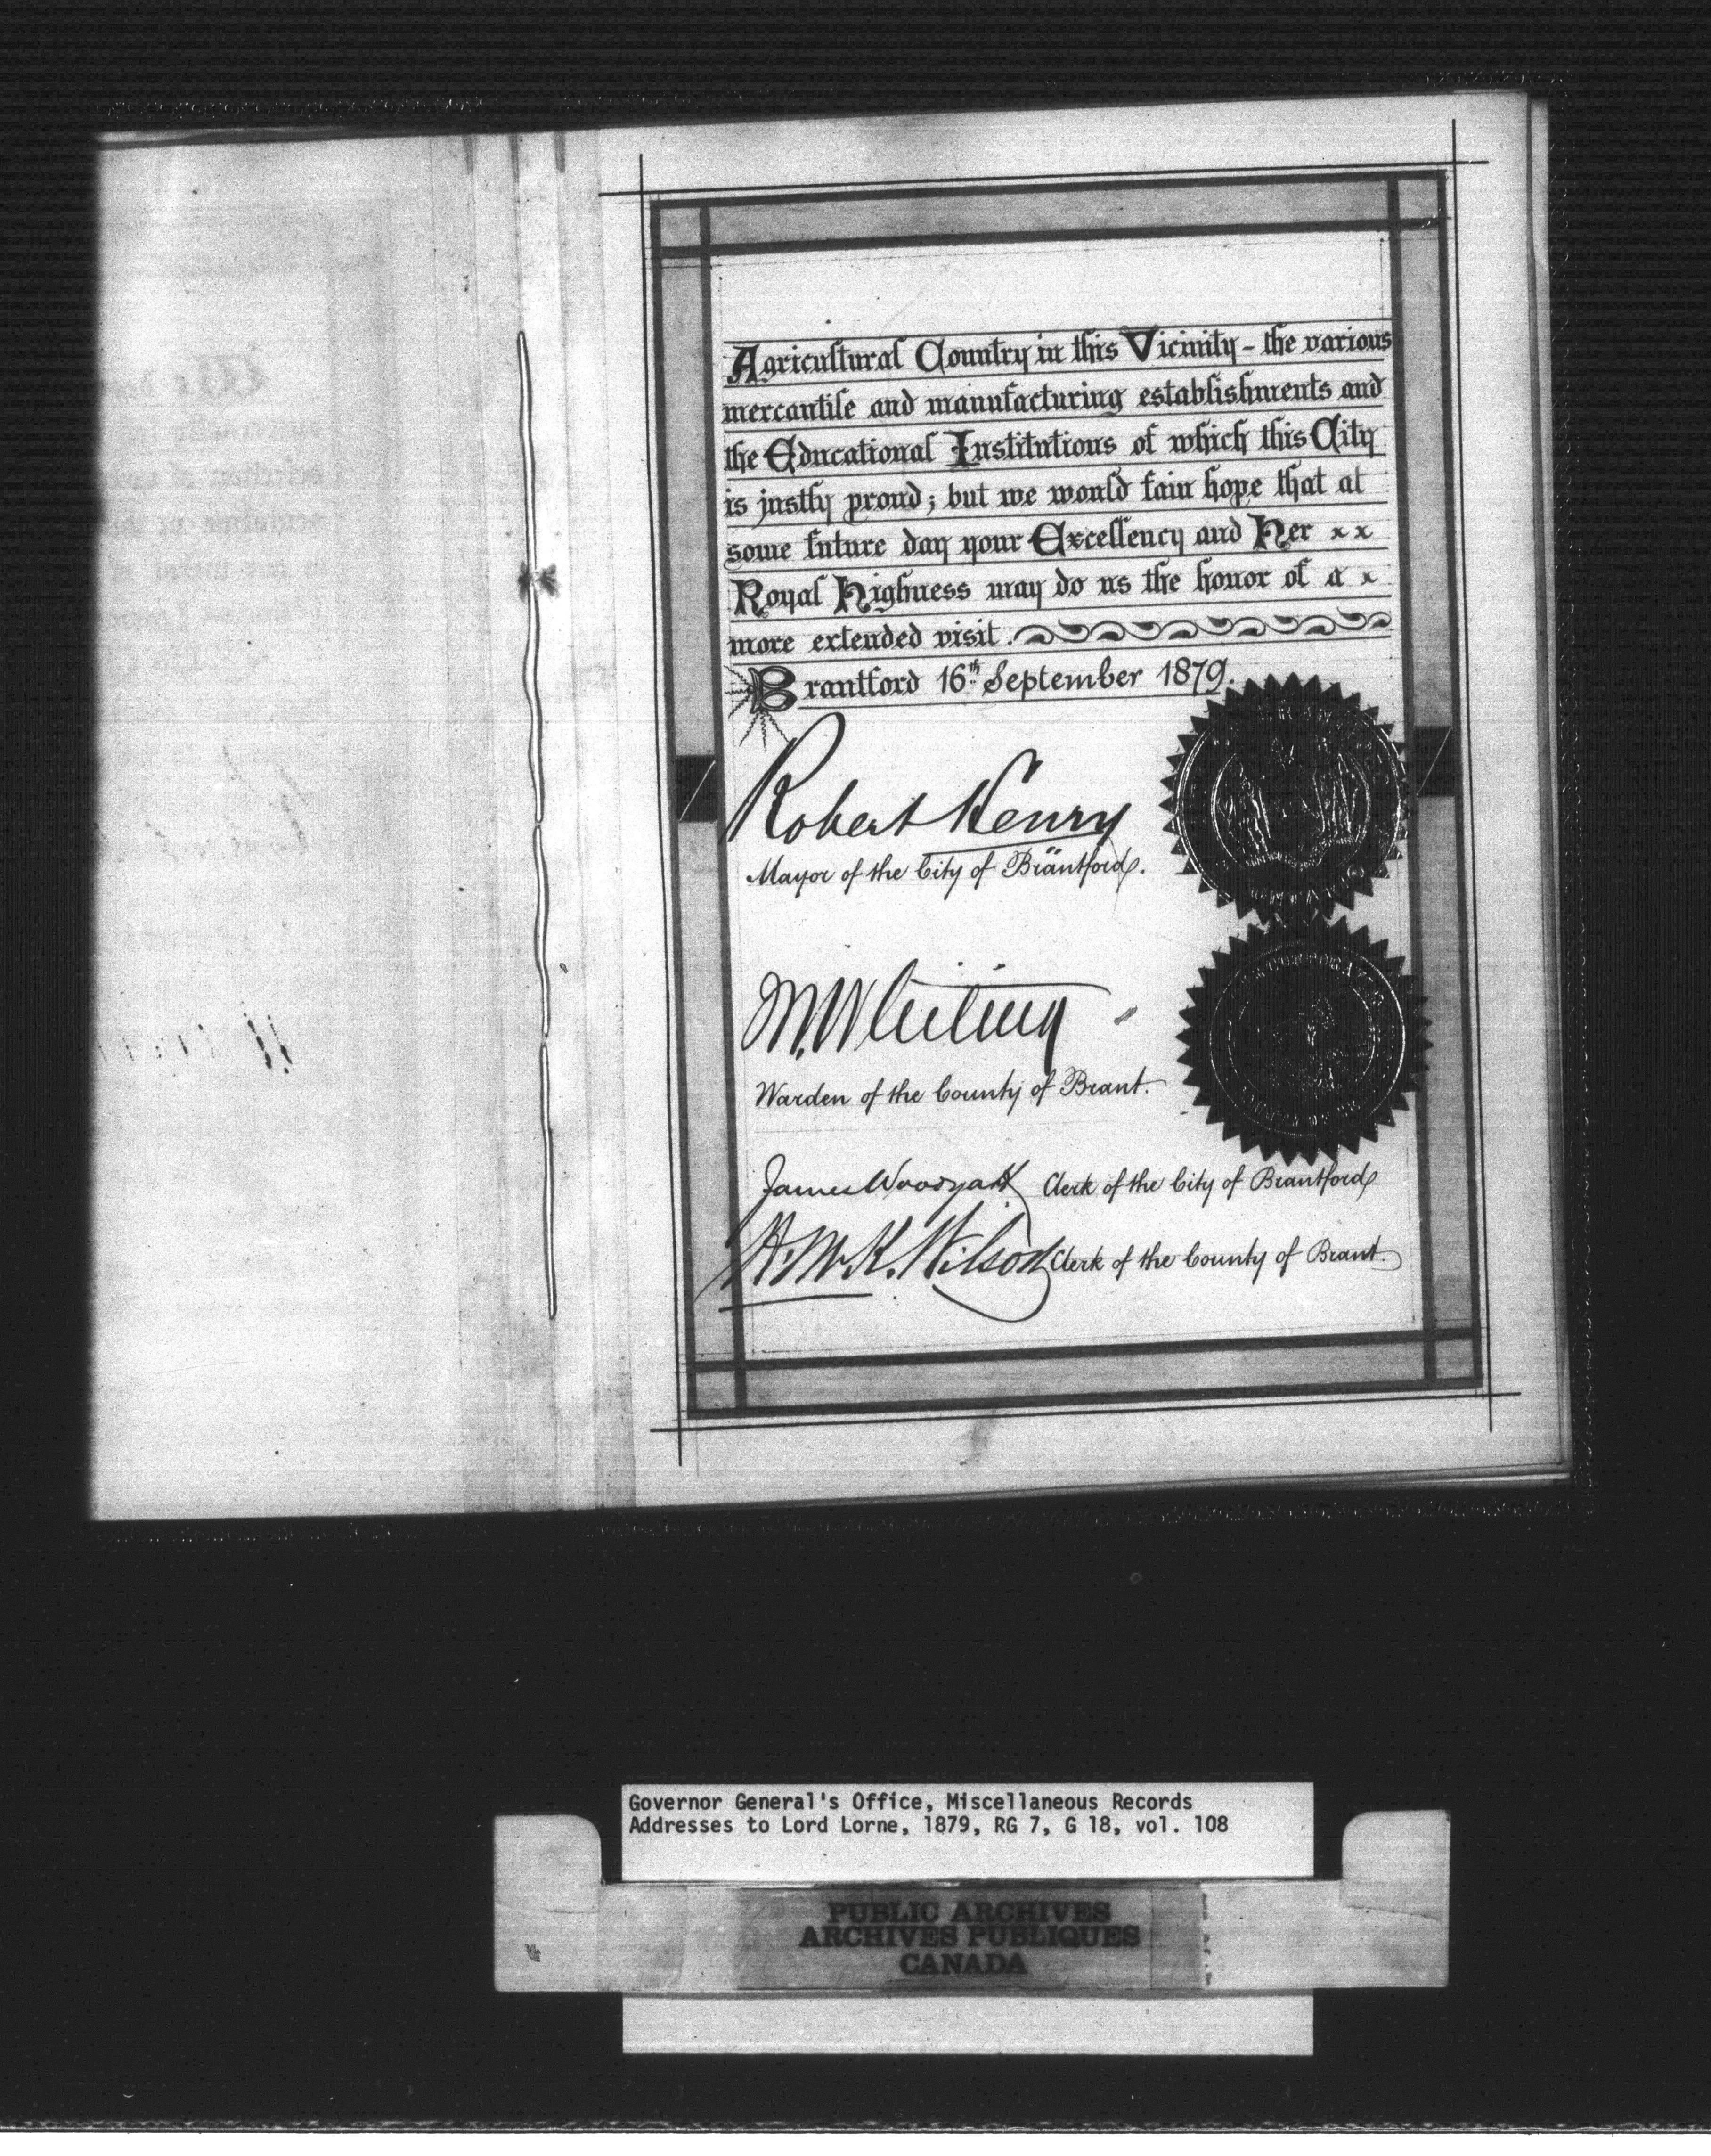 Agricultural Country in this Vicinity - the various
mercantile and manufacturing establishments and
the Educational Institutions of which this City
is justly proud; but we would fain hope that at
some future day your Excellency and Her x x
Royal Highness may do us the honor of a x
more extended visit.
Brantford 16th September 1879.
Robert Henry
Mayor of the City of Brantford.
M. Whiting
Warden of the County of Brant.
James Woodyatt Clerk of the City of Brantford
H. McK. Wilson Clerk of the County of Brant.
Governor General's Office, Miscellaneous Records
Addresses to Lord Lorne, 1879, RG 7, G 18, vol. 108
PUBLIC ARCHIVES
ARCHIVES PUBLIQUES
CANADA